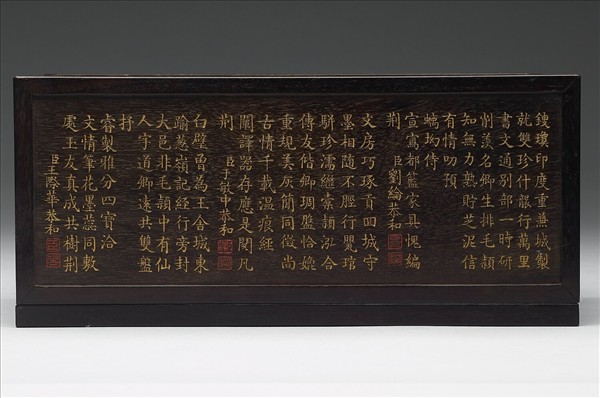 鍾瓊印度重蕪城製
就雙珍什龍行萬里
書文通別部一時研
削羨名卿生排毛穎
知無力熟貯芝泥信
有情叨預
蠕坳侍
宣寫都籃家具愧編
荆　臣劉綸恭和
文房巧琢貢回城守
墨相隨不脛行嬰琯
駢珍濡繼崇穎泓合
傳友偕卿琱盤恰媲
重規美灰簡同徵尚
古情千載温痕經
闡譯器存應是閱凡
荆　臣于敏中恭和
白璧曾為王舍城東
踰葱嶺記經行旁封
大邑非毛穎中有仙
人字道卿遠共雙盤
抒
睿製雅分四寶洽
文情筆花墨蕊同敷
處玉友真成共樹荆
臣王際華恭和